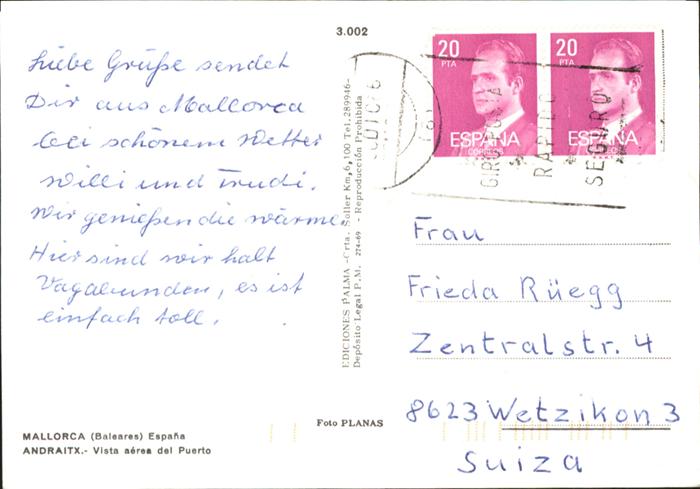 3.002
Liebe Grüße sendet
Dir aus Mallorca
bei schönem Wetter
Willi und Trudi.
Wir genießen die wärme.
Hier sind wir halt
Vagabunden, es ist
einfach toll.
MALLORCA (Baleares) España
ANDRAITX.- Vista aérea del Puerto
EDICIONES PALMA -Crta. Soller Km, 6,100 Tel. 289946-
Depósito Legal P.M. 274-69 - Reproducción Prohibida
Foto PLANAS
20
PTA
ESPAÑA
CORREOS
20
PTA
ESPAÑA
GIRO POSTAL
RAPIDO
SEGURO
Frau
Frieda Rüegg
Zentralstr. 4
8623 Wetzikon 3
Suiza